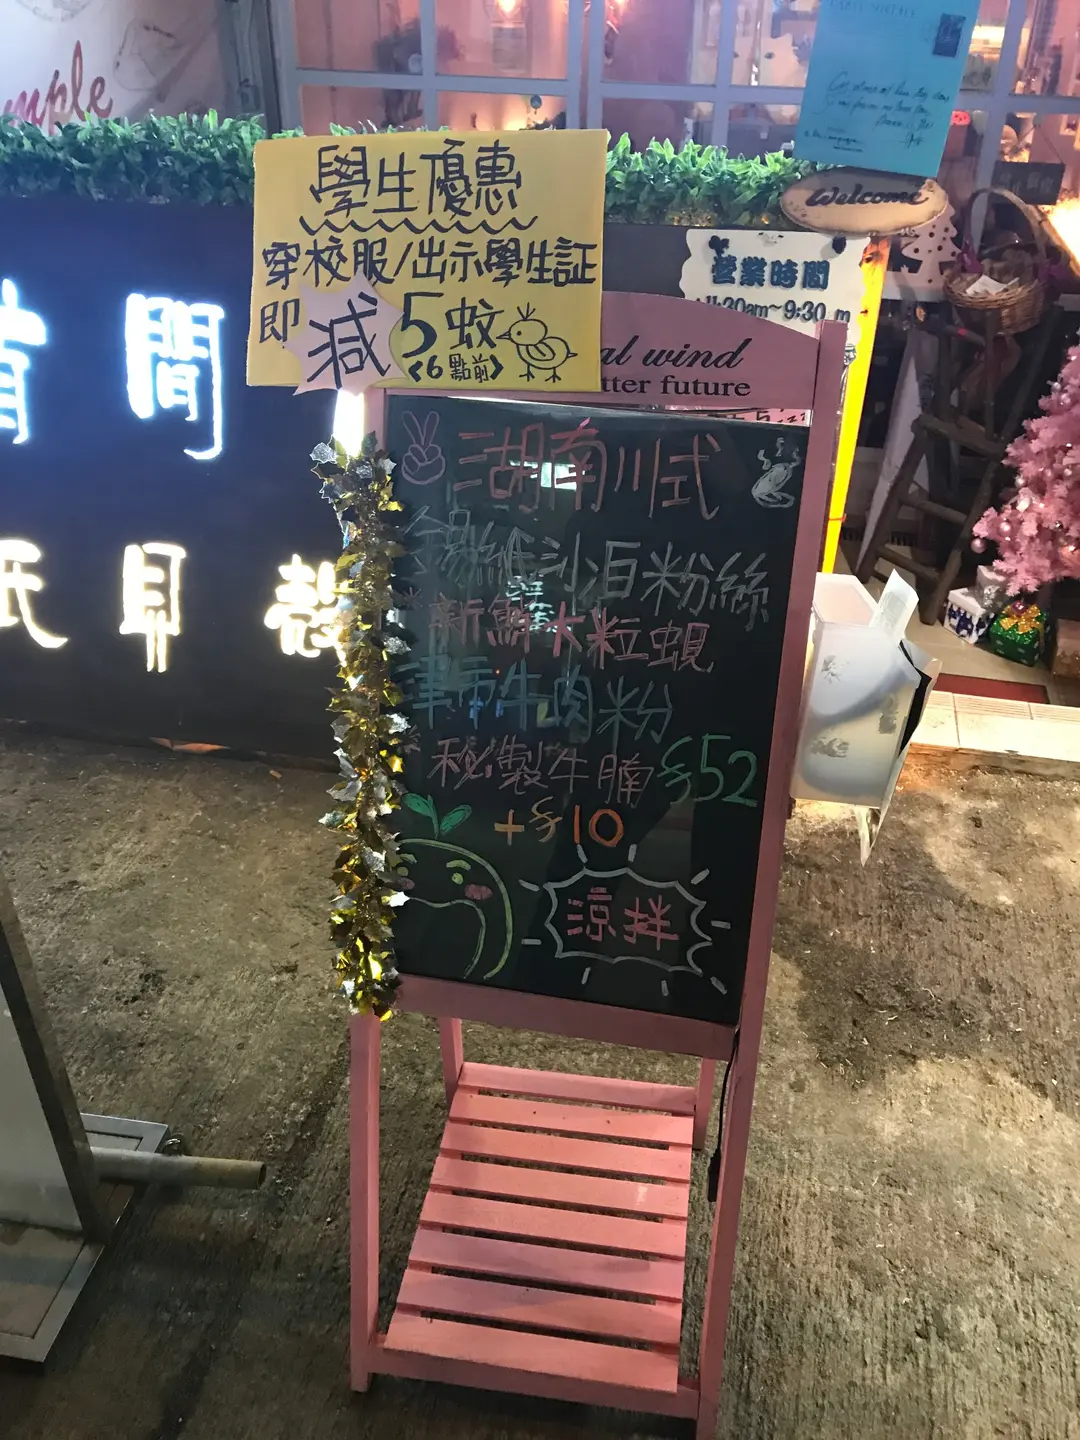 mple
學生優惠
穿校服/出示學生証
即減5蚊
<6點前>
Welcome
營業時間
11:30am~9:30 m
al wind
tter future
湖南川式
錫紙沙白粉絲
*新鮮大粒蜆
津市牛肉粉
*秘製牛腩 $52
+$10
涼拌
間
氏 耳 殼